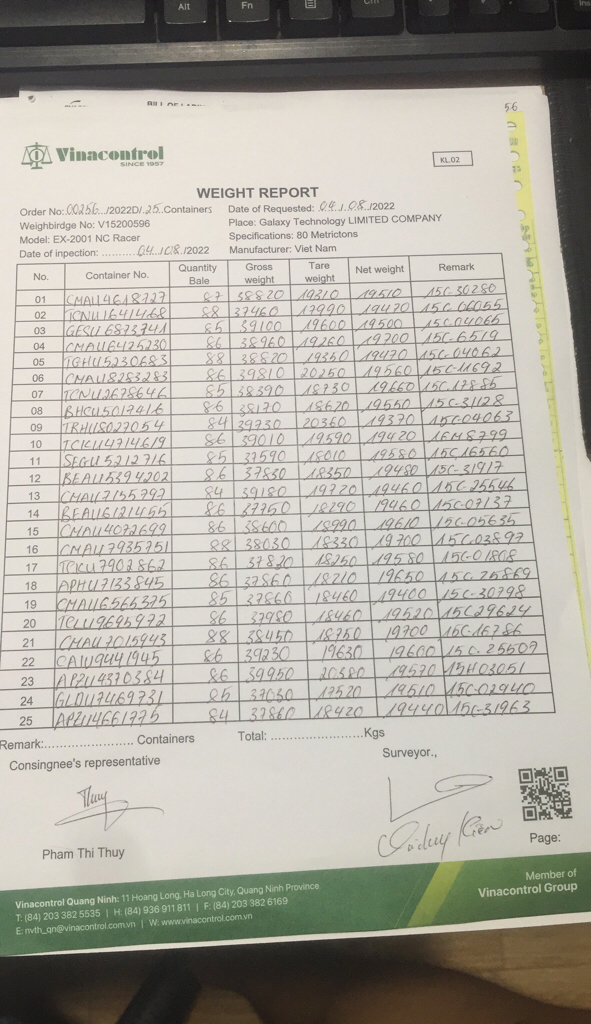 Alt
Fn
Ctrl
56
Vinacontrol
SINCE 1957
KL.02
WEIGHT REPORT
Order No: 00256 /2022D/ 25 Containers Date of Requested: 04 / 08 /2022
Weighbirdge No: V15200596 Place: Galaxy Technology LIMITED COMPANY
Model: EX-2001 NC Racer Specifications: 80 Metrictons
Date of inpection: ........... 04 / 08 /2022 Manufacturer: Viet Nam
No. Container No. Quantity Bale Gross weight Tare weight Net weight Remark
01 CMAU4618727 87 38820 19310 19510 15C-30280
02 TCNU1641468 88 37460 17990 19470 15C-06055
03 GESU6873741 85 39100 19600 19500 15C-04065
04 CMAU6425230 86 38960 19260 19700 15C-6519
05 TGHU5230683 88 38820 19350 19470 15C-04062
06 CMAU8283283 86 39810 20250 19560 15C-11692
07 TCNU2678646 85 38390 18730 19660 15C-12885
08 BHCU5017416 86 38170 18620 19550 15C-31128
09 TRHU8027054 84 39730 20360 19370 15C-04063
10 TCKU4714619 86 39010 19590 19420 16M8799
11 SEGU5212716 85 37590 18010 19580 15C16560
12 BEAU5394202 86 37830 18350 19480 15C-31917
13 CMAU7155797 84 39180 19720 19460 15C-25546
14 BEAU6121455 86 37750 18290 19460 15C-07137
15 CMAU4072699 86 38600 18990 19610 15C-05635
16 CMAU7935751 88 38030 18330 19700 15C-03897
17 TCKU7902862 86 37820 18250 19580 15C-01808
18 APHU7133845 86 37860 18210 19650 15C-25869
19 CMAU6565375 85 37860 18460 19400 15C-30798
20 TCLU9695972 86 37980 18460 19520 15C29624
21 CMAU7015943 88 38450 18750 19700 15C-16786
22 CAIU9441945 86 39230 19630 19600 15C-25507
23 APZU4370384 86 39950 20380 19570 15H03051
24 GLDU7469731 85 37030 17520 19510 15C-02940
25 APZU4661775 84 37860 18420 19440 15C-31963
Remark:....................... Containers Total: .......................Kgs
Consingnee's representative Surveyor.,
Thuy
Pham Thi Thuy
Page:
Vinacontrol Quang Ninh: 11 Hoang Long, Ha Long City, Quang Ninh Province
T: (84) 203 382 5535 | H: (84) 936 911 811 | F: (84) 203 382 6169
E: nvth_qn@vinacontrol.com.vn | W: www.vinacontrol.com.vn
Member of
Vinacontrol Group